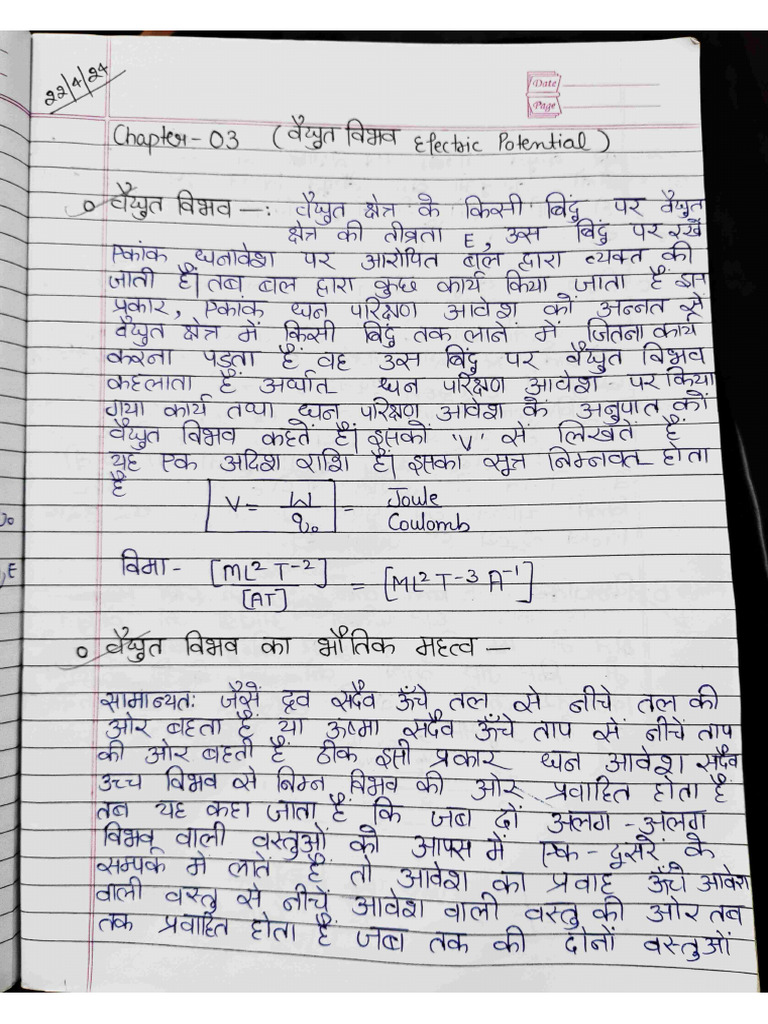 22/4/24
Date
Page
Chapter-03 (वैद्युत विभव Electric Potential)
वैद्युत विभव —: वैद्युत क्षेत्र के किसी बिंदु पर वैद्युत
क्षेत्र की तीव्रता E, उस बिंदु पर रखें
एकांक धनावेश पर आरोपित बल द्वारा व्यक्त की
जाती हैं। तब बल द्वारा कुछ कार्य किया जाता हैं इस
प्रकार, एकांक धन परिक्षण आवेश कों अन्नत से
वैद्युत क्षेत्र में किसी बिंदु तक लाने में जितना कार्य
करना पड़ता हैं वह उस बिंदु पर वैद्युत विभव
कहलाता हैं अर्थात धन परिक्षण आवेश पर किया
गया कार्य तथा धन परिक्षण आवेश के अनुपात कों
वैद्युत विभव कहतें हैं। इसकों 'V' सें लिखतें हैं
यह एक अदिश राशि हैं। इसका सूत्र निम्नवत होता
हैं
V = W/q₀ = Joule/Coulomb
विमा - [ML²T⁻²]/[AT] = [ML²T⁻³A⁻¹]
वैद्युत विभव का भौतिक महत्व —
सामान्यतः जैसें द्रव सदैव ऊँचे तल से नीचे तल की
ओर बहता हैं या ऊष्मा सदैव ऊँचे ताप सें नीचें ताप
की ओर बहती हैं ठीक इसी प्रकार धन आवेश सदैव
उच्च विभव से निम्न विभव की ओर प्रवाहित होता हैं
तब यह कहा जाता हैं कि जब दों अलग-अलग
विभव वाली वस्तुओं कों आपस में एक-दूसरें के
सम्पर्क में लातें हैं तो आवेश का प्रवाह ऊँचें आवेश
वाली वस्तु से नीचें आवेश वाली वस्तु की ओर तब
तक प्रवाहित होता हैं जब तक की दोनों वस्तुओं
E